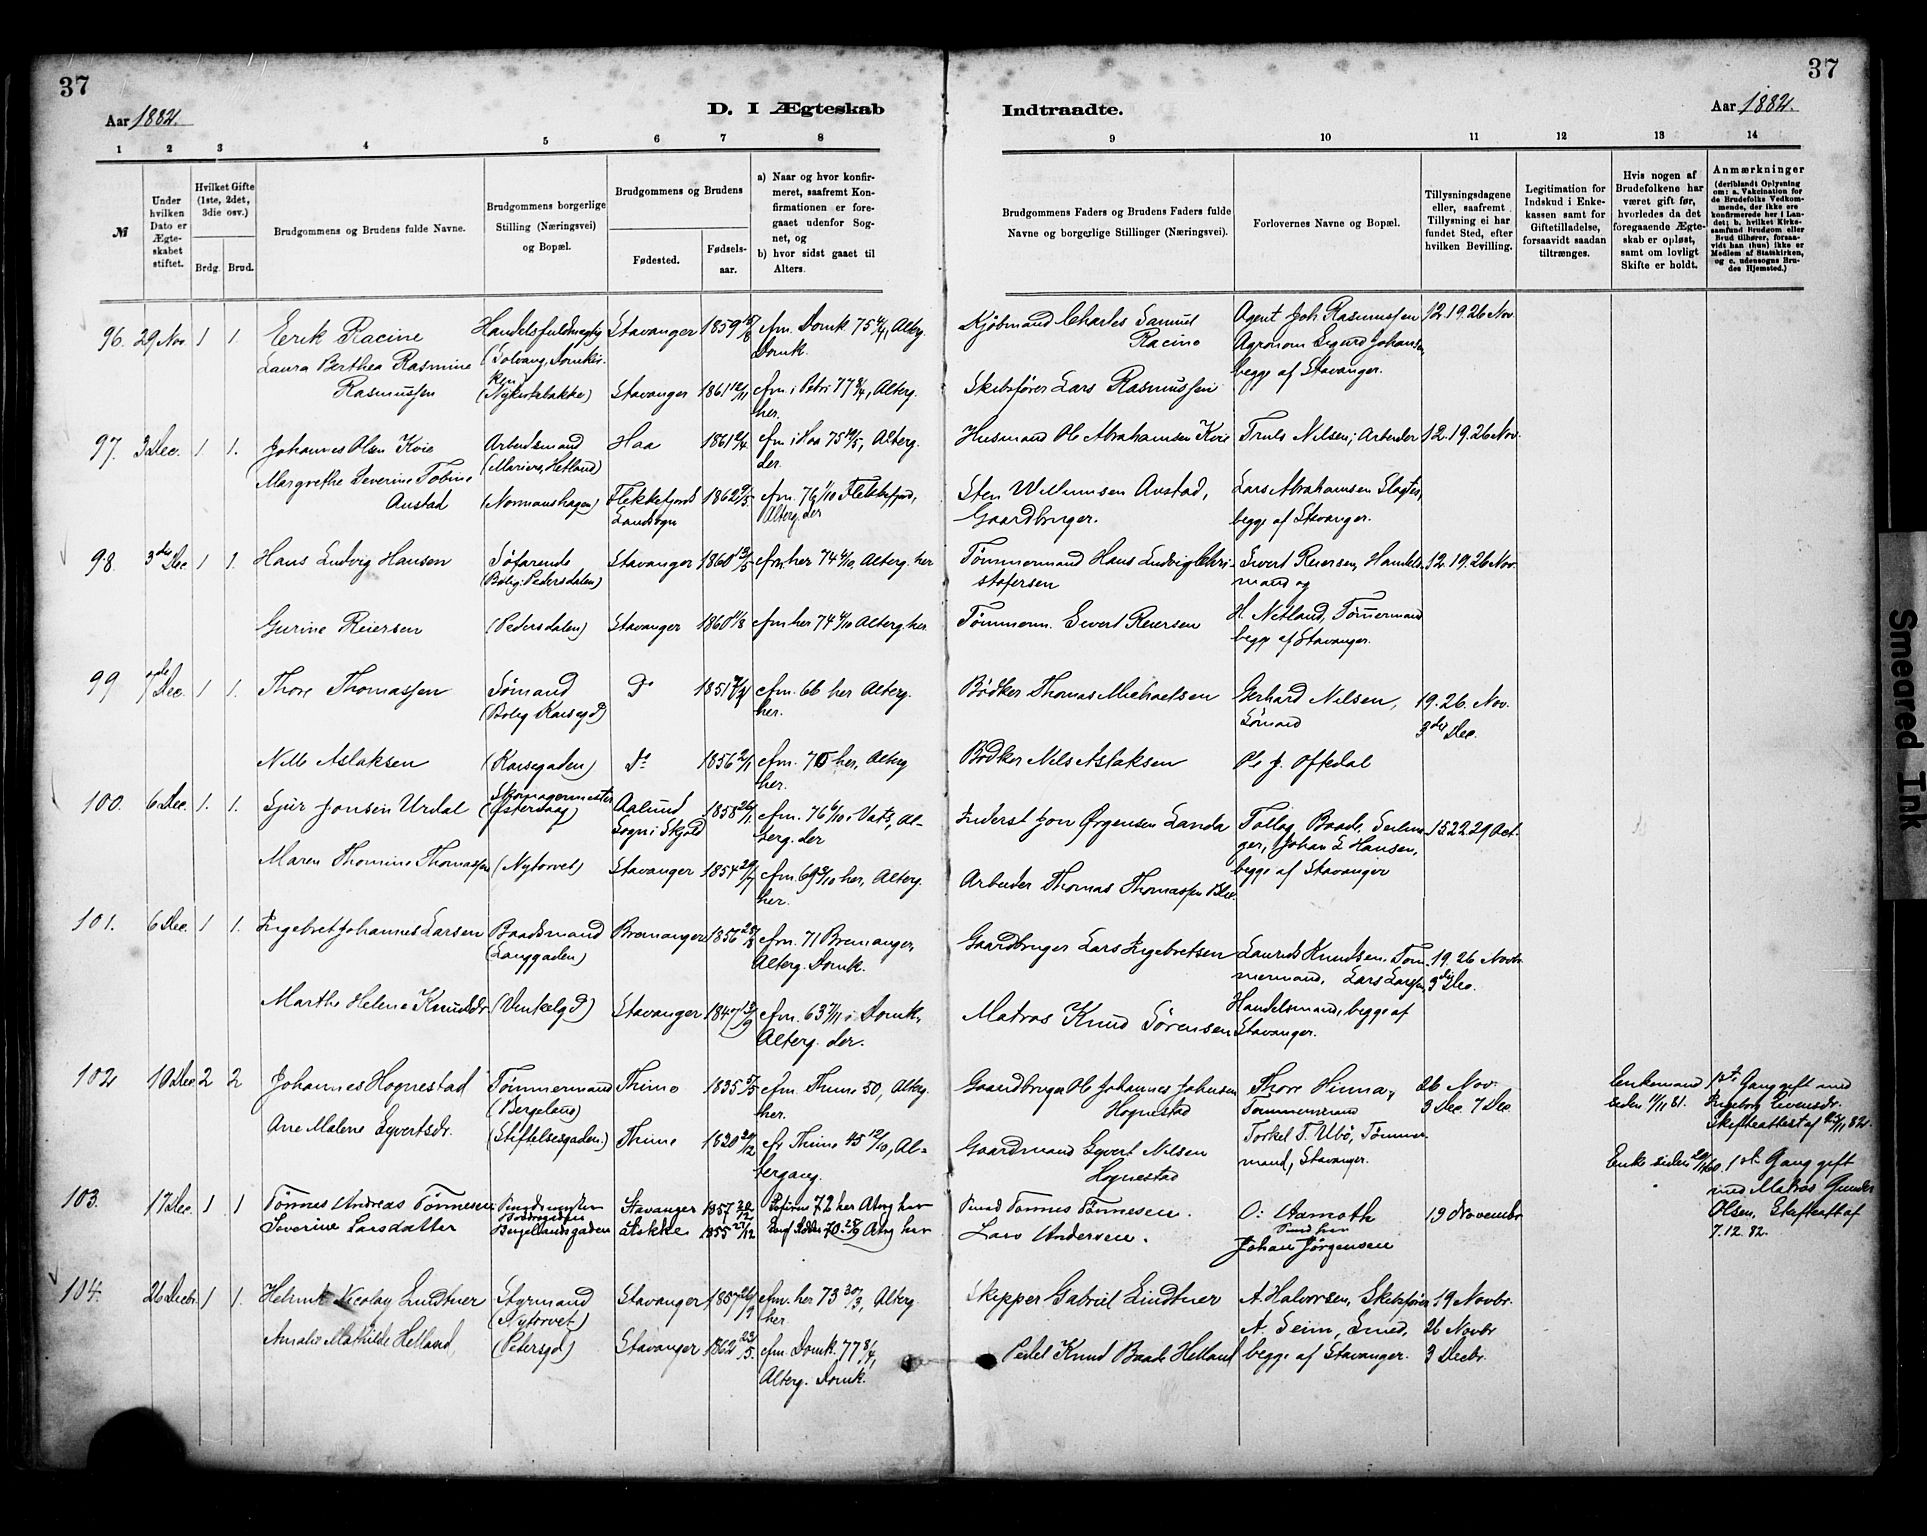 37
37
Aar 1882.
D. I Ægteskab
Indtraadte.
Aar 1882.
1 2 3 4 5 6 7 8 9 10 11 12 13 14
№
Under hvilken Dato er Ægteskabet stiftet.
Hvilket Gifte (1ste, 2det, 3die osv.)
Brdg. Brud.
Brudgommens og Brudens fulde Navne.
Brudgommens borgerlige Stilling (Næringsvei) og Bopæl.
Brudgommens og Brudens
Fødested.
Fødselsaar.
a) Naar og hvor konfirmeret, saafremt Konfirmationen er foregaaet udenfor Sognet, og
b) hvor sidst gaaet til Alters.
Brudgommens Faders og Brudens Faders fulde Navne og borgerlige Stillinger (Næringsvei).
Forlovernes Navne og Bopæl.
Tillysningsdagene eller, saafremt Tillysning ei har fundet Sted, efter hvilken Bevilling.
Legitimation for Indskud i Enkekassen samt for Giftetilladelse, forsaavidt saadan tiltrænges.
Hvis nogen af Brudefolkene har været gift før, hvorledes da det foregaaende Ægteskab er opløst, samt om lovligt Skifte er holdt.
Anmærkninger
(deriblandt Oplysning om: a. Vakcination for de Brudefolks Vedkommende, der ikke ere konfirmerede her i Landet; b. hvilket Kirkesamfund Brudgom eller Brud tilhører, forsaavidt han (hun) ikke er Medlem af Statskirken, og c. udensogns Brudes Hjemsted.)
96. 29 Nov 1 1. Erik Racine Handelsfuldmægtig Stavanger 1859 cfm. Domk. 75, Alterg. Domk. Kjøbmand Charles Samuel Racine Agent Joh. Rasmussen Agronom Sigurd Johansen, begge af Stavanger. 12. 19. 26 Nov.
Laura Berthea Rasmine Rasmussen (Nykirkebakke) Stavanger 1861 12/11 cfm. i Petri 77 8/4, Alterg. her. Skibsfører Lars Rasmussen
97. 3 Dec. 1 1. Johannes Olsen Kvie Arbeidsmand (Mariero, Hetland) Haa 1861 cfm. i Haa 75, Alterg. der. Husmand Ole Abrahamsen Kvie Truls Nilsen, Arbeider 12. 19. 26 Nov.
Margrethe Severine Tobine Austad (Normanshagen) Flekkefjords Landsogn 1862 cfm. 76 1/10 Flekkefjord, Alterg. der Sten Willumsen Austad, Gaardbruger. Lars Abrahamsen Slagter, begge af Stavanger.
98. 3die Dec 1 1. Hans Ludvig Hansen Søfarende (Bolig: Pedersdalen) Stavanger 1860 13/5 cfm. her 74 4/10, Alterg. her Tømmermand Hans Ludvig Christofersen Sivert Reiersen, Handelsmand og 12. 19. 26 Nov.
Gurine Reiersen (Pedersdalen) Stavanger 1860 11/8 cfm her 74 4/10 Alterg. her. Tømmerm. Sivert Reiersen H. Netland, Tømmermand begge af Stavanger.
99 Dec. 1 1. Thore Thomassen Sømand (Bolig Karsegd) Do 1851 cfm. 66 her Alterg. her. Bødker Thomas Michaelsen Gerhard Nilsen, Sømand 19. 26. Nov. 3die Dec.
Nille Aslaksen (Karsegaden) Do 1856 2/1 cfm. 70 her, Alterg her. Bødker Nils Aslaksen Ole J. Oftedal
100. 6 Dec. 1. 1. Sjur Jonsen Urdal Skomagermester (Østervaag) Aalund Sogn i Skjold 1858 26/11 cfm. 76 6/10 i Vats, Alterg. der Inderst Jon Ørgensen Landa Tollag Baade, Seilmager, Johan E Hansen, begge af Stavanger 15 22 29 Oct.
Maren Thomine Thomassen (Nytorvet) Stavanger 1854 cfm. 69 3/10 her, Alterg. her. Arbeider Thomas Thomassen
101. 6 Dec. 1 1. Ingebret Johannes Larsen Baadsmand (Langgaden) Bremanger 1856 cfm. 71 Bremanger, Alterg. Domk. Gaardbruger Lars Ingebretsen Laurids Knudsen, Tømmermand, Lars Larssen, Handelsmand, begge af Stavanger. 19. 26 Novbr 3die Dec.
Marthe Helene Knudsdr (Venkelgd) Stavanger 1847 13/9 cfm. 63 i Domk. Alterg. der. Matros Knud Sørensen
102 10 Dec 2 2 Johannes Hognestad Tømmermand (Bergeland) Thime 1835 cfm. Thime 50, Alterg. her. Gaardbruger Ole Johannes Johnsen Hognestad Thore Hinna, Tømmermand 26 Nov. 3 Dec. 7 Dec. Enkemand siden 11/11 81. 1ste Gang gift med Ingeborg Eivensdr. Skifteattest af 25/11 82.
Ane Malene Syvertsdr. (Stiftelsesgaden.) Thime 1820 cf. Thime 45 12/10, Altergang. Gaardmand Syvert Nilsen Hognestad Torkel T. Ubø, Tømmermand, Stavanger. Enke siden 60. 1ste Gang gift med Matros Gunder Olsen, Skifteatt af 7.12.82.
103. 17 Dec. 1 1 Tønnes Andreas Tønnesen Stavanger 1857 22/12 72 her Alterg her Tønnes Tønnesen. O: Aamoth 19 Novembr
Severine Larsdatter Bergelandsgaden 1855 Alterg her Lars Andersen. Johan Jørgensen
104. 26 Decbr. 1 1. Helmik Nicolay Lindtner Styrmand (Nytorvet) Stavanger 1857 26/9 cfm. her 73 30/3, Alterg. her Skipper Gabriel Lindtner A. Halvorsen, Skibsfører 19 Novbr.
A. Seim, Smed, 26 Novbr
Amalie Mathilde Helland, (Petersgd) Stavanger 1862 23/5. cfm. Domk. 77 8/4, Alterg. Domk. Pedel Knud Baade Helland begge af Stavanger. 3 Decbr.
Smeared Ink